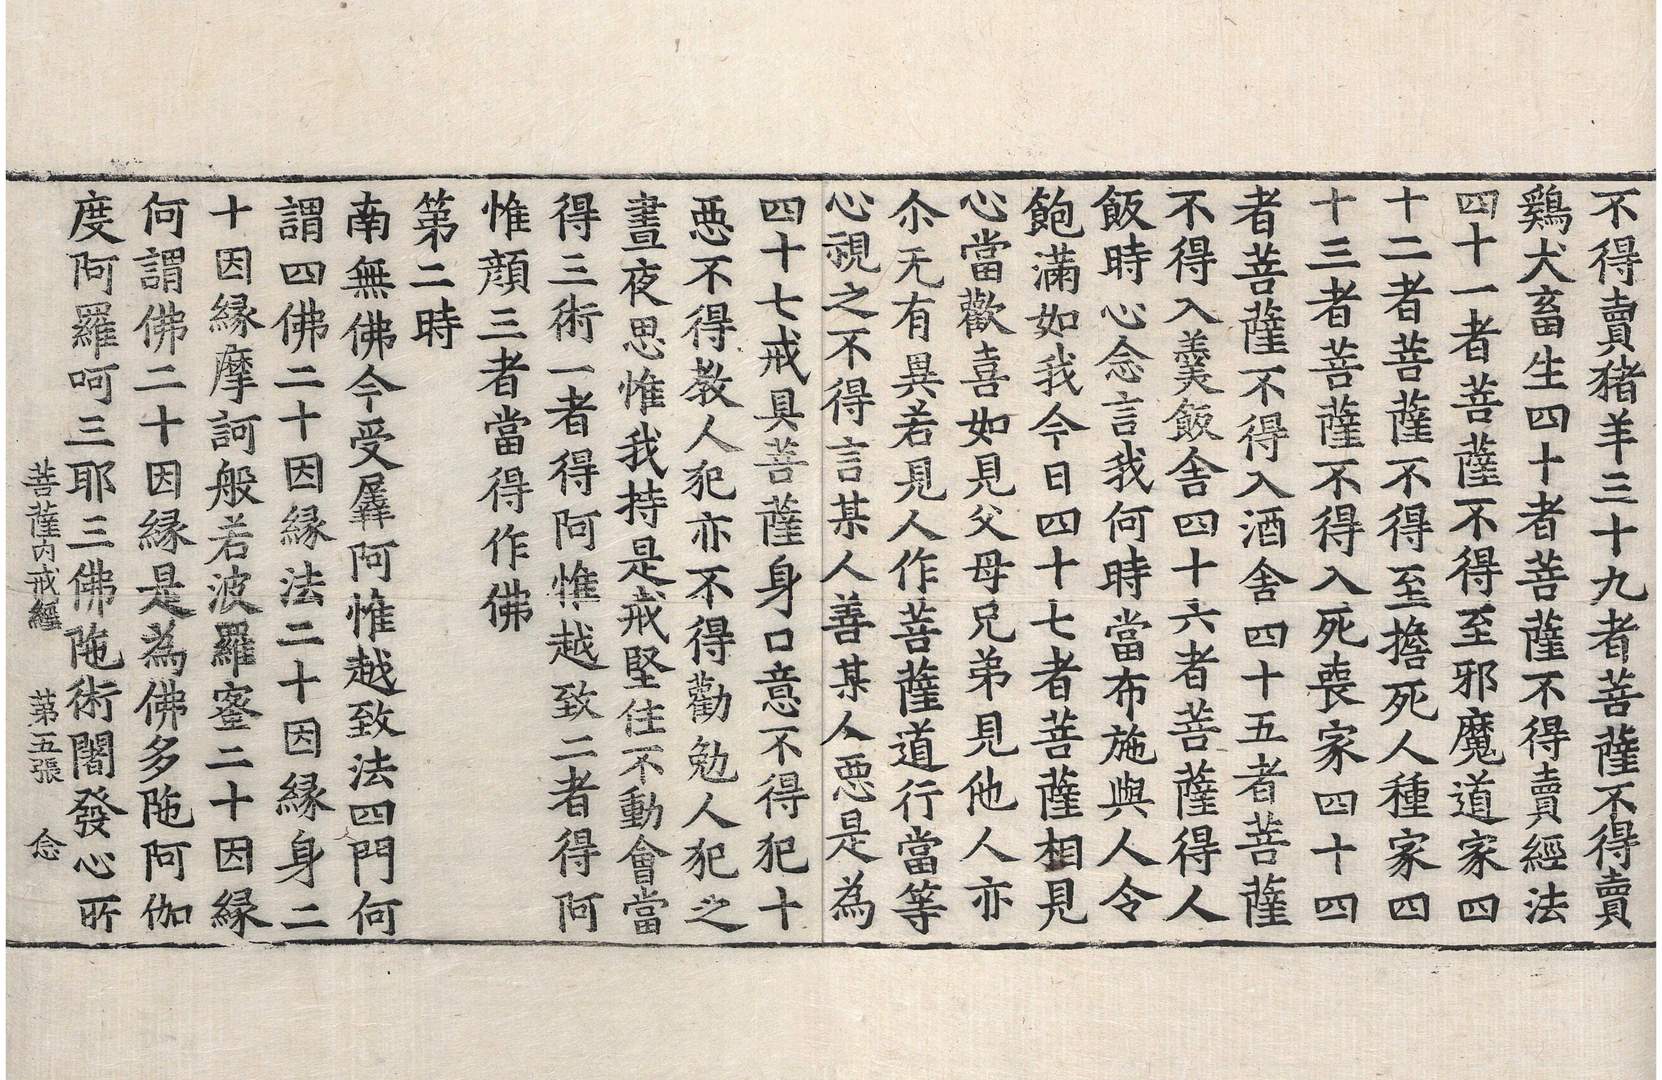 不得賣猪羊三十九者菩薩不得賣
鷄犬畜生四十者菩薩不得賣經法
四十一者菩薩不得至邪魔道家四
十二者菩薩不得至擔死人種家四
十三者菩薩不得入死喪家四十四
者菩薩不得入酒舍四十五者菩薩
不得入羹飯舍四十六者菩薩得人
飯時心念言我何時當布施與人令
飽滿如我今日四十七者菩薩相見
心當歡喜如見父母兄弟見他人亦
尒无有異若見人作菩薩道行當等
心視之不得言某人善某人惡是為
四十七戒具菩薩身口意不得犯十
惡不得教人犯亦不得勸勉人犯之
晝夜思惟我持是戒堅住不動會當
得三術一者得阿惟越致二者得阿
惟顔三者當得作佛
第二時
南無佛今受羼阿惟越致法四門何
謂四佛二十因縁法二十因縁身二
十因縁摩訶般若波羅蜜二十因縁
何謂佛二十因縁是為佛多陁阿伽
度阿羅呵三耶三佛陁術闍發心所
菩薩内戒經 第五張 念